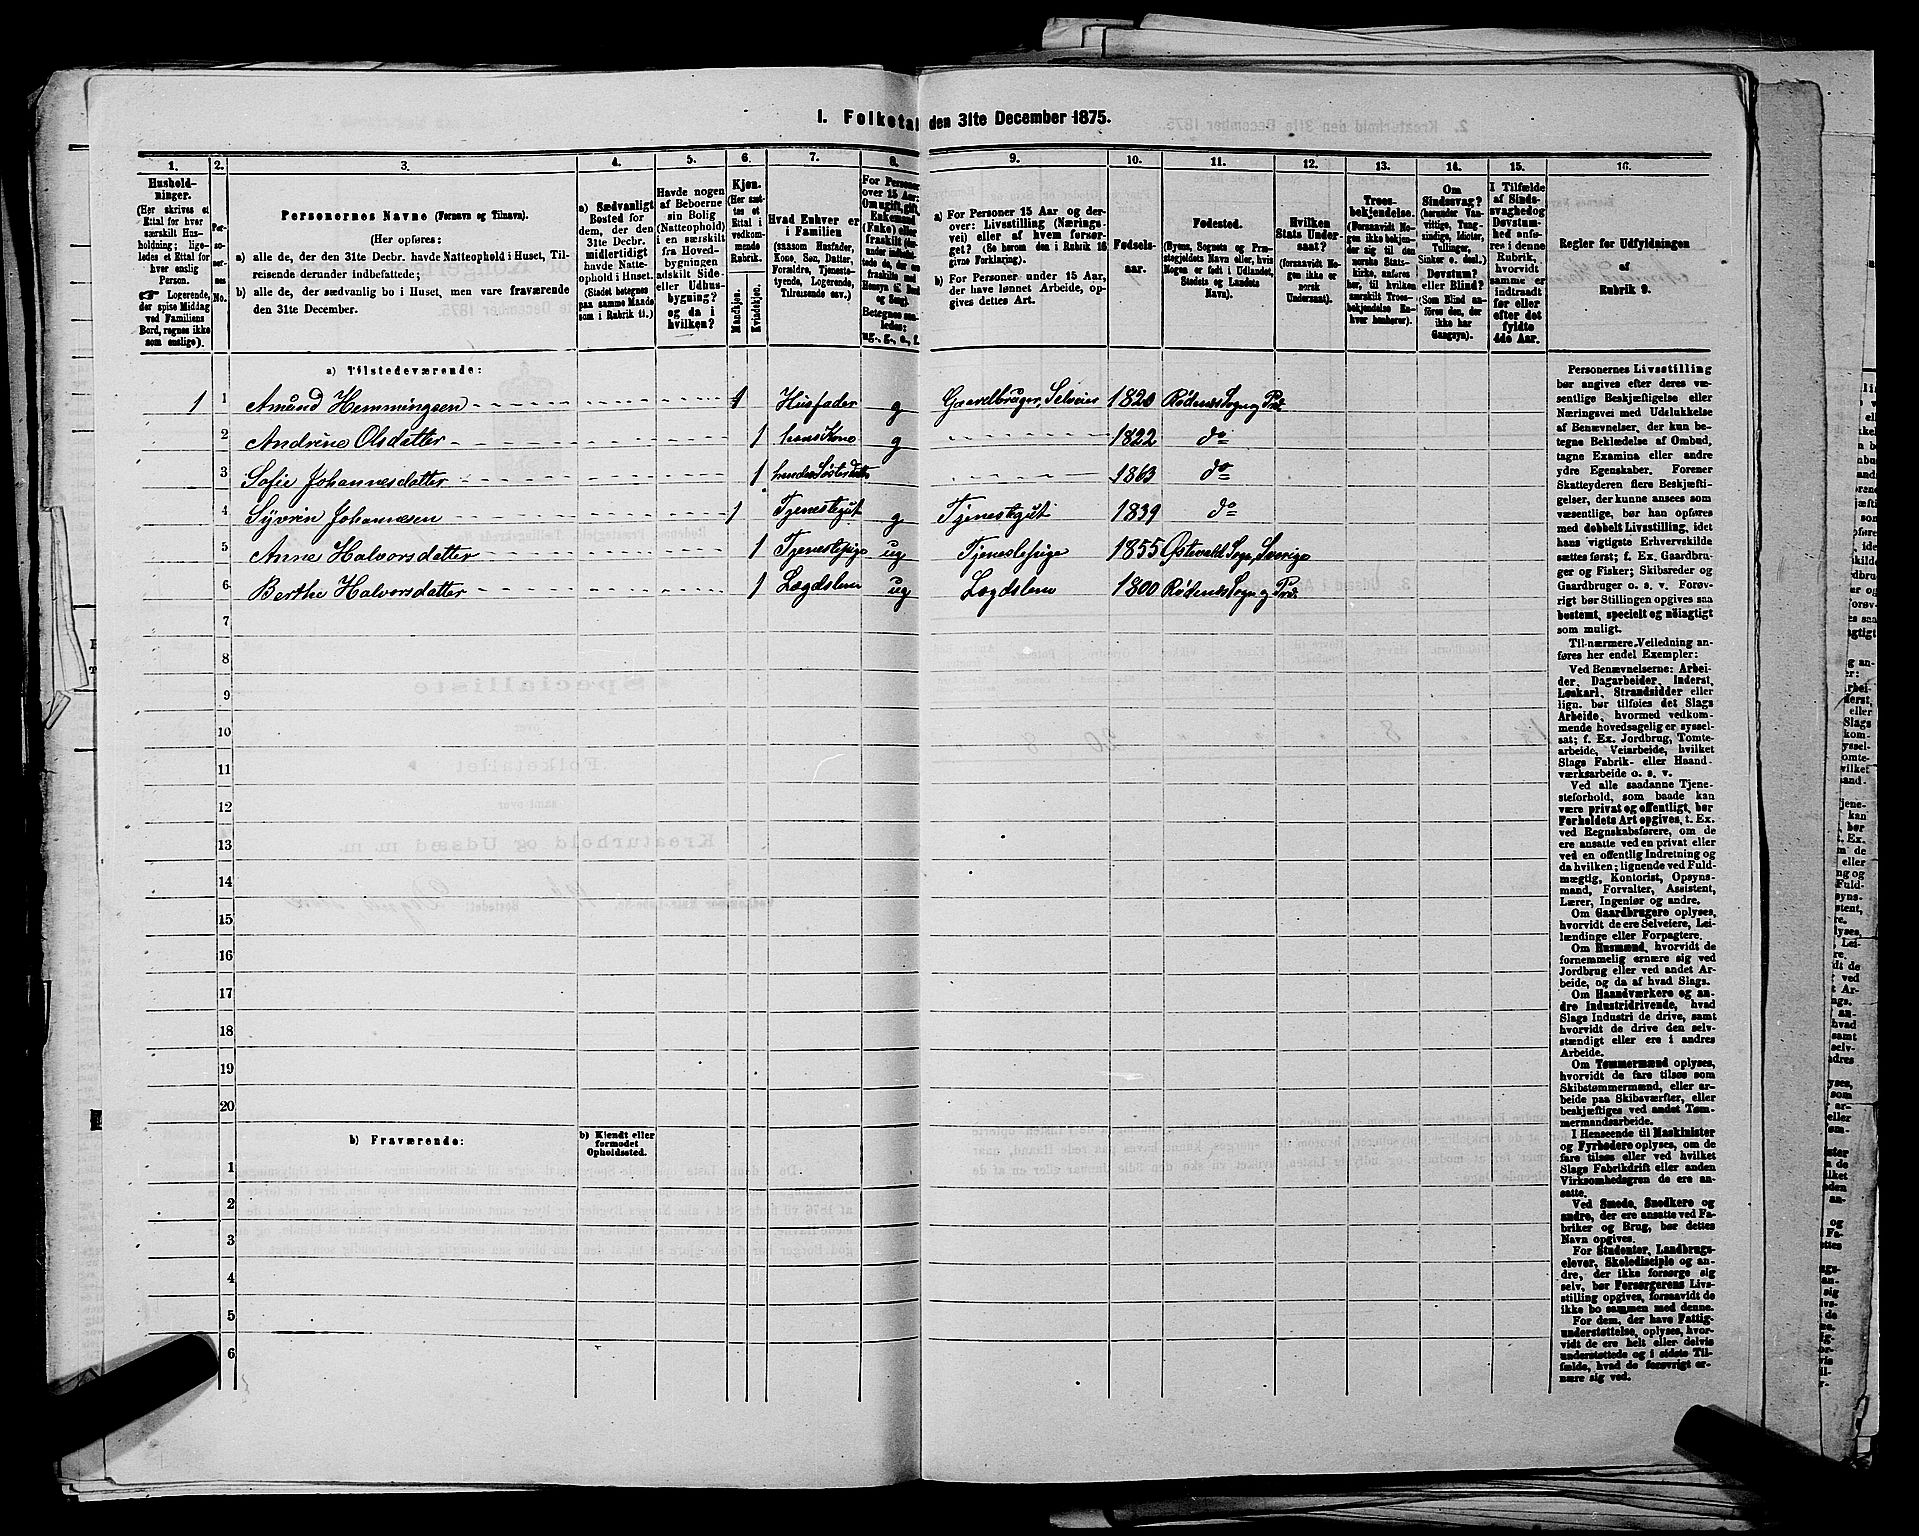 I. Folketal den 31te December 1875.
1. 2. 3. 4. 5. 6. 7. 8. 9. 10. 11. 12. 13. 14. 15. 16.
Hushold-
ninger.
(Her skrives et
Ettal for hver
særskilt Hus-
holdning; lige-
ledes et Ettal for
hver enslig
Person.
Logerende,
der spise Middag
ved Familiens
Bord, regnes ikke
som enslige).
Per-
so-
ner-
nes
No.
Personernes Navne (Fornavn og Tilnavn).
(Her opføres:
a) alle de, der den 31te Decbr. havde Natteophold i Huset, Til-
reisende derunder indbefattede;
b) alle de, der sædvanlig bo i Huset, men vare fraværende
den 31te December.
a) Sædvanligt
Bosted for
dem, der den
31te Decbr.
midlertidigt
havde Natte-
ophold i Huset.
(Stedet betegnes
paa samme Maade
som i Rubrik 11.)
Havde nogen
af Beboerne
sin Bolig
(Natteophold)
i en særskilt
fra Hoved-
bygningen
adskilt Side-
eller Udhus-
bygning?
og da i
hvilken?
Kjøn.
(Her sæt-
tes et
Ettal i
vedkom-
mende
Rubrik.
Mandkjøn.
Kvindekjøn.
Hvad Enhver er
i Familien
(saasom Husfader,
Kone, Søn, Datter,
Forældre, Tjeneste-
tyende, Logerende,
Tilreisende osv.)
For Personer
over 15 Aar:
Om ugift, gift,
Enkemand
(Enke) eller
fraskilt
Betegnes saa-
ledes:
ug., g., e., f.
a) For Personer 15 Aar og der-
over: Livsstilling (Nærings-
vei) eller af hvem forsør-
get? (Se herom den i Rubrik 16
givne Forklaring).
b) For Personer under 15 Aar,
der have lønnet Arbeide, op-
gives dettes Art.
Fødsels-
aar.
Fødested.
(Byens, Sognets og Præ-
stegjeldets Navn eller, hvis
Nogen er født i Udlandet,
Stedets og Landets
Navn).
Hvilken
Stats Under-
saat?
(forsaavidt No-
gen ikke er
norsk
Undersaat).
Troes-
bekjendelse.
(Forsaavidt No-
gen ikke bekjen-
der sig til den
norske Stats-
kirke, anføres
her, til hvilken
særskilt Troes-
bekjendelse En-
hver henhører).
Om
Sindssvag?
(herunder Van-
vittige, Tung-
sindige, Idioter,
Tullinger,
Sinker o. desl.)
Døvstum?
eller Blind?
(Som Blind an-
føres den, der
ikke har
Gangsyn).
I Tilfælde
af Sinds-
svaghed og
Døvstum-
hed anføres
i denne
Rubrik,
hvorvidt
samme er
indtraadt
før eller
efter det
fyldte
4de Aar.
Regler for Udfyldningen
af
Rubrik 9.
a) Tilstedeværende:
1 1 Amund Hemmingsen 1 Husfader g Gaardbruger, Selveier 1820 Rødenes Sogn og Prd.
2 Andrine Olsdatter 1 hans Kone g 1822 do
3 Sofie Johannesdatter 1 hendes Søsterdatter 1863 do
4 Syvrin Johannesen 1 Tjenestegut g Tjenestegut 1839 do
5 Anne Halvorsdatter 1 Tjenestepige ug Tjenestepige 1855 Østevald Sogn, Sverige
6 Berthe Halvorsdatter 1 Lægdslem ug Lægdslem 1800 Rødenes Sogn og Prd.
7
8
9
10
11
12
13
14
15
16
17
18
19
20
b) Fraværende:
b) Kjendt eller
formodet
Opholdssted.
1
2
3
4
5
6
Personernes Livsstilling
bør angives efter deres væ-
sentlige Beskjæftigelse eller
Næringsvei med Udelukkelse
af Benævnelser, der kun be-
tegne Beklædelse af Ombud,
tagne Examina eller andre
ydre Egenskaber. Forener
Skatteyderen flere Beskjæfti-
gelser, der kunne ansees som
væsentlige, bør han opføres
med dobbelt Livsstilling, idet
hans vigtigste Erhvervskilde
sættes først; f. Ex. Gaardbru-
ger og Fisker; Skibsreder og
Gaardbruger o. s. v. Forøv-
rigt bør Stillingen opgives saa
bestemt, specielt og nøiagtigt
som muligt.
Til nærmere Veiledning an-
føres her endel Exempler:
Ved Benævnelserne: Arbei-
der, Dagarbeider, Inderst,
Løskarl, Strandsidder eller
lign. bør tilføies det Slags
Arbeide, hvormed vedkom-
mende hovedsagelig er syssel-
sat; f. Ex. Jordbrug, Tomte-
arbeide, Veiarbeide, hvilket
Slags Fabrik- eller Haand-
værksarbeide o. s. v.
Ved alle saadanne Tjene-
steforhold, som baade kan
være privat og offentligt, bør
Forholdets Art opgives, t. Ex.
ved Regnskabsførere, om de
ere ansatte ved en privat eller
ved en offentlig Indretning og
da hvilken; lignende ved Fuld-
mægtig, Kontorist, Opsyns-
mand, Forvalter, Assistent,
Lærer, Ingeniør og andre.
Om Gaardbrugere oplyses,
hvorvidt de ere Selveiere, Lei-
lændinge eller Forpagtere.
Om Husmænd, hvorvidt de
fornemmelig ernære sig ved
Jordbrug eller ved andet Ar-
beide, og da af hvad Slags.
Om Haandværkere og an-
dre Industridrivende, hvad
Slags Industri de drive, samt
hvorvidt de drive den selv-
stændigt eller ere i andres
Arbeide.
Om Tømmermænd oplyses,
hvorvidt de fare tilsøs som
Skibstømmermænd, eller ar-
beide paa Skibsværfter, eller
beskjæftiges ved andet Tøm-
mermandsarbeide.
I Henseende til Maskinister
og Fyrbødere oplyses, om de
fare tilsøs eller ved hvilket
Slags Fabrikdrift eller anden
Virksomhedsgren de ere an-
satte.
Ved Smede, Snedkere og
andre, der ere ansatte ved Fa-
briker og Brug, bør dettes
Navn opgives.
For Studenter, Landbrugs-
elever, Skoledisciple og an-
dre, der ikke forsørge sig
selv, bør Forsørgerens Livs-
stilling opgives, forsaavidt de
ikke bo sammen med denne.
For dem, der have Fattig-
understøttelse, oplyses, hvor-
vidt de ere helt eller delvis
understøttede og i sidste Til-
fælde, hvad de forøvrigt er-
nære sig ved.